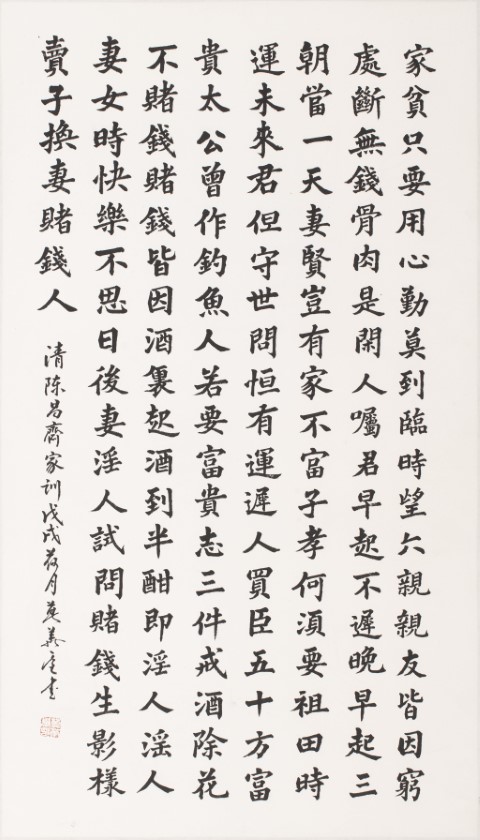 家貧只要用心勤莫到臨時望六親親友皆因窮
處斷無錢骨肉是閑人囑君早起不遲晚早起三
朝當一天妻賢豈有家不富子孝何須要祖田時
運未來君但守世間恒有運遲人買臣五十方富
貴太公曾作釣魚人若要富貴志三件戒酒除花
不賭錢賭錢皆因酒裏起酒到半酣即淫人淫人
妻女時快樂不思日後妻淫人試問賭錢生影樣
賣子換妻賭錢人
清陳昌齊家訓戊戌荷月莫義書